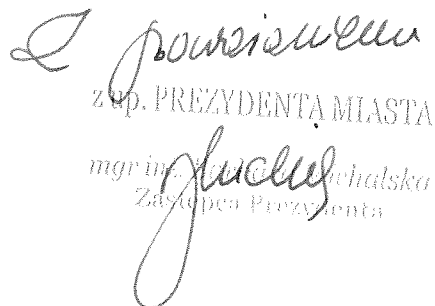 Z poważaniem
z up. PREZYDENTA MIASTA
mgr inż.
Zastępca Prezydenta